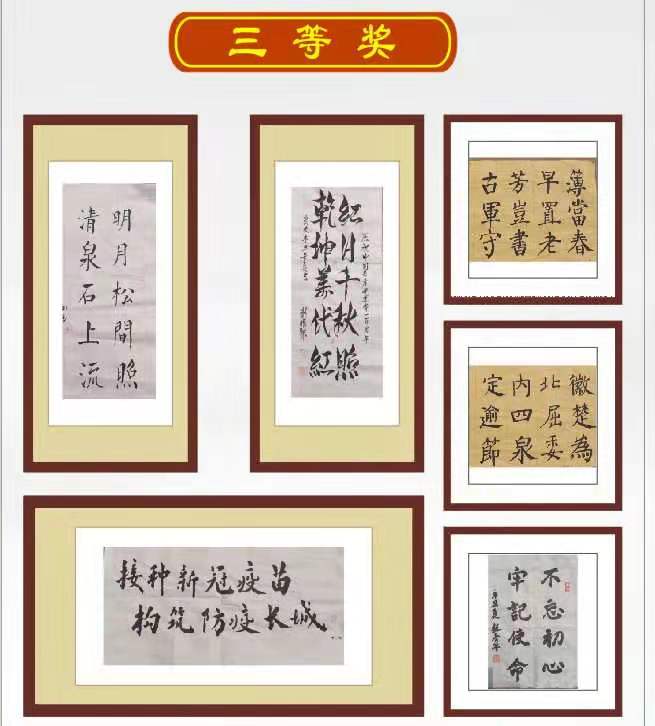 三等奖
明月松間照
清泉石上流
红日千秋照
乾坤萬代紅
薄當春
早置老
芳豈書
古軍守
徽楚為
北屈委
内四泉
定逾節
接种新冠疫苗
构筑防疫长城
不忘初心
牢記使命
辛丑夏